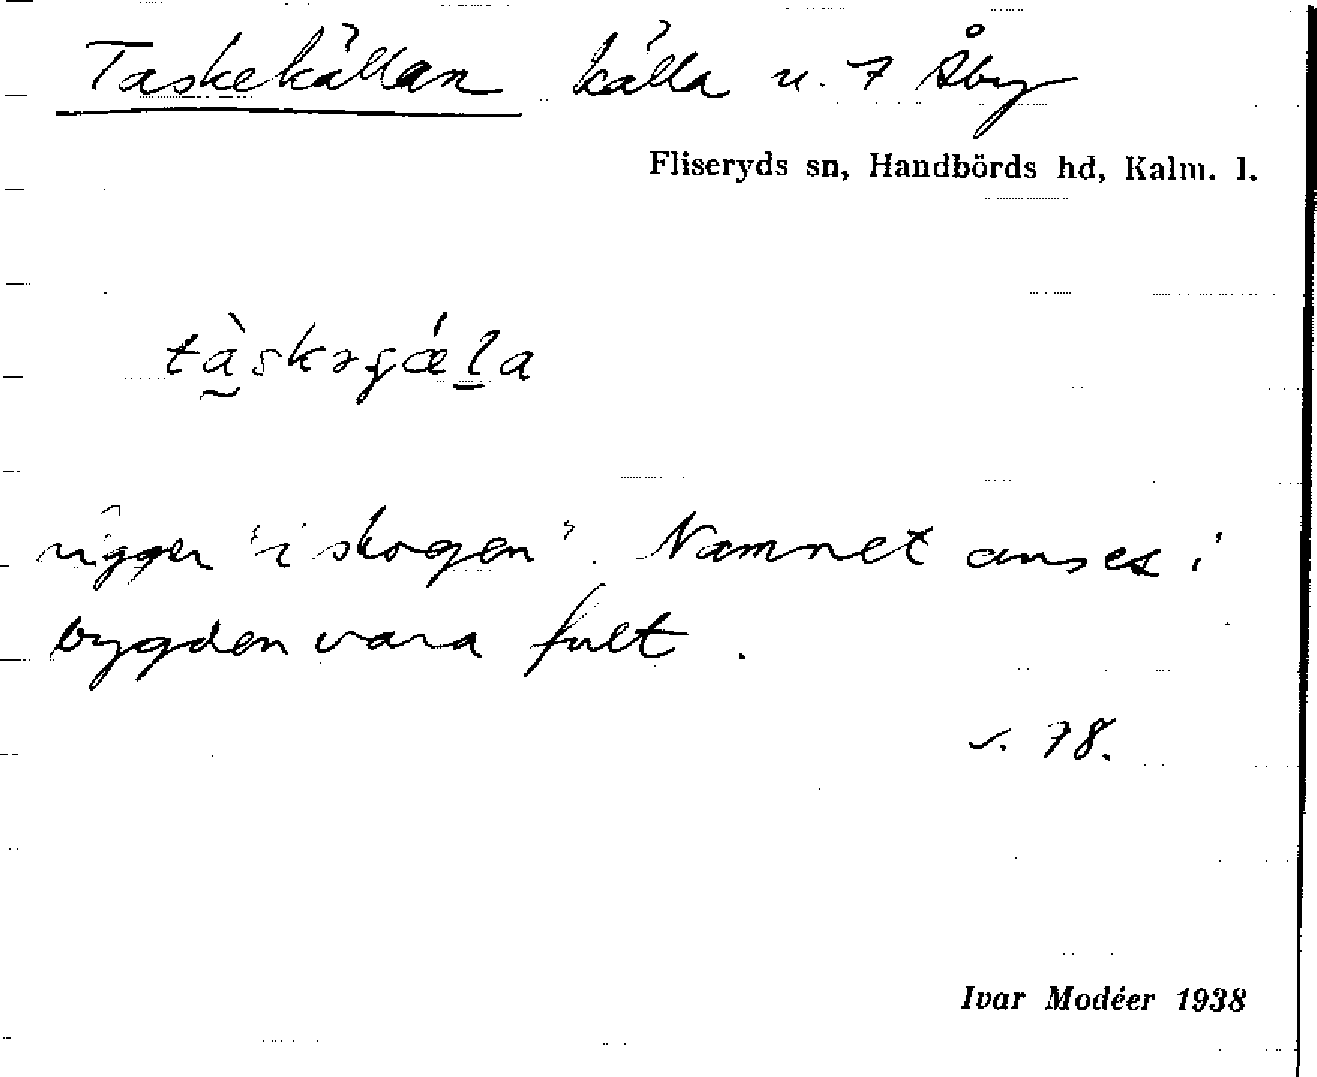 Taskekällan källa u. 7 Åby
Fliseryds sn, Handbörds hd, Kalm. l.
tàskəɟǽla
ligger "i skogen". Namnet anses i
bygden vara fult.
s. 78.
Ivar Modéer 1938